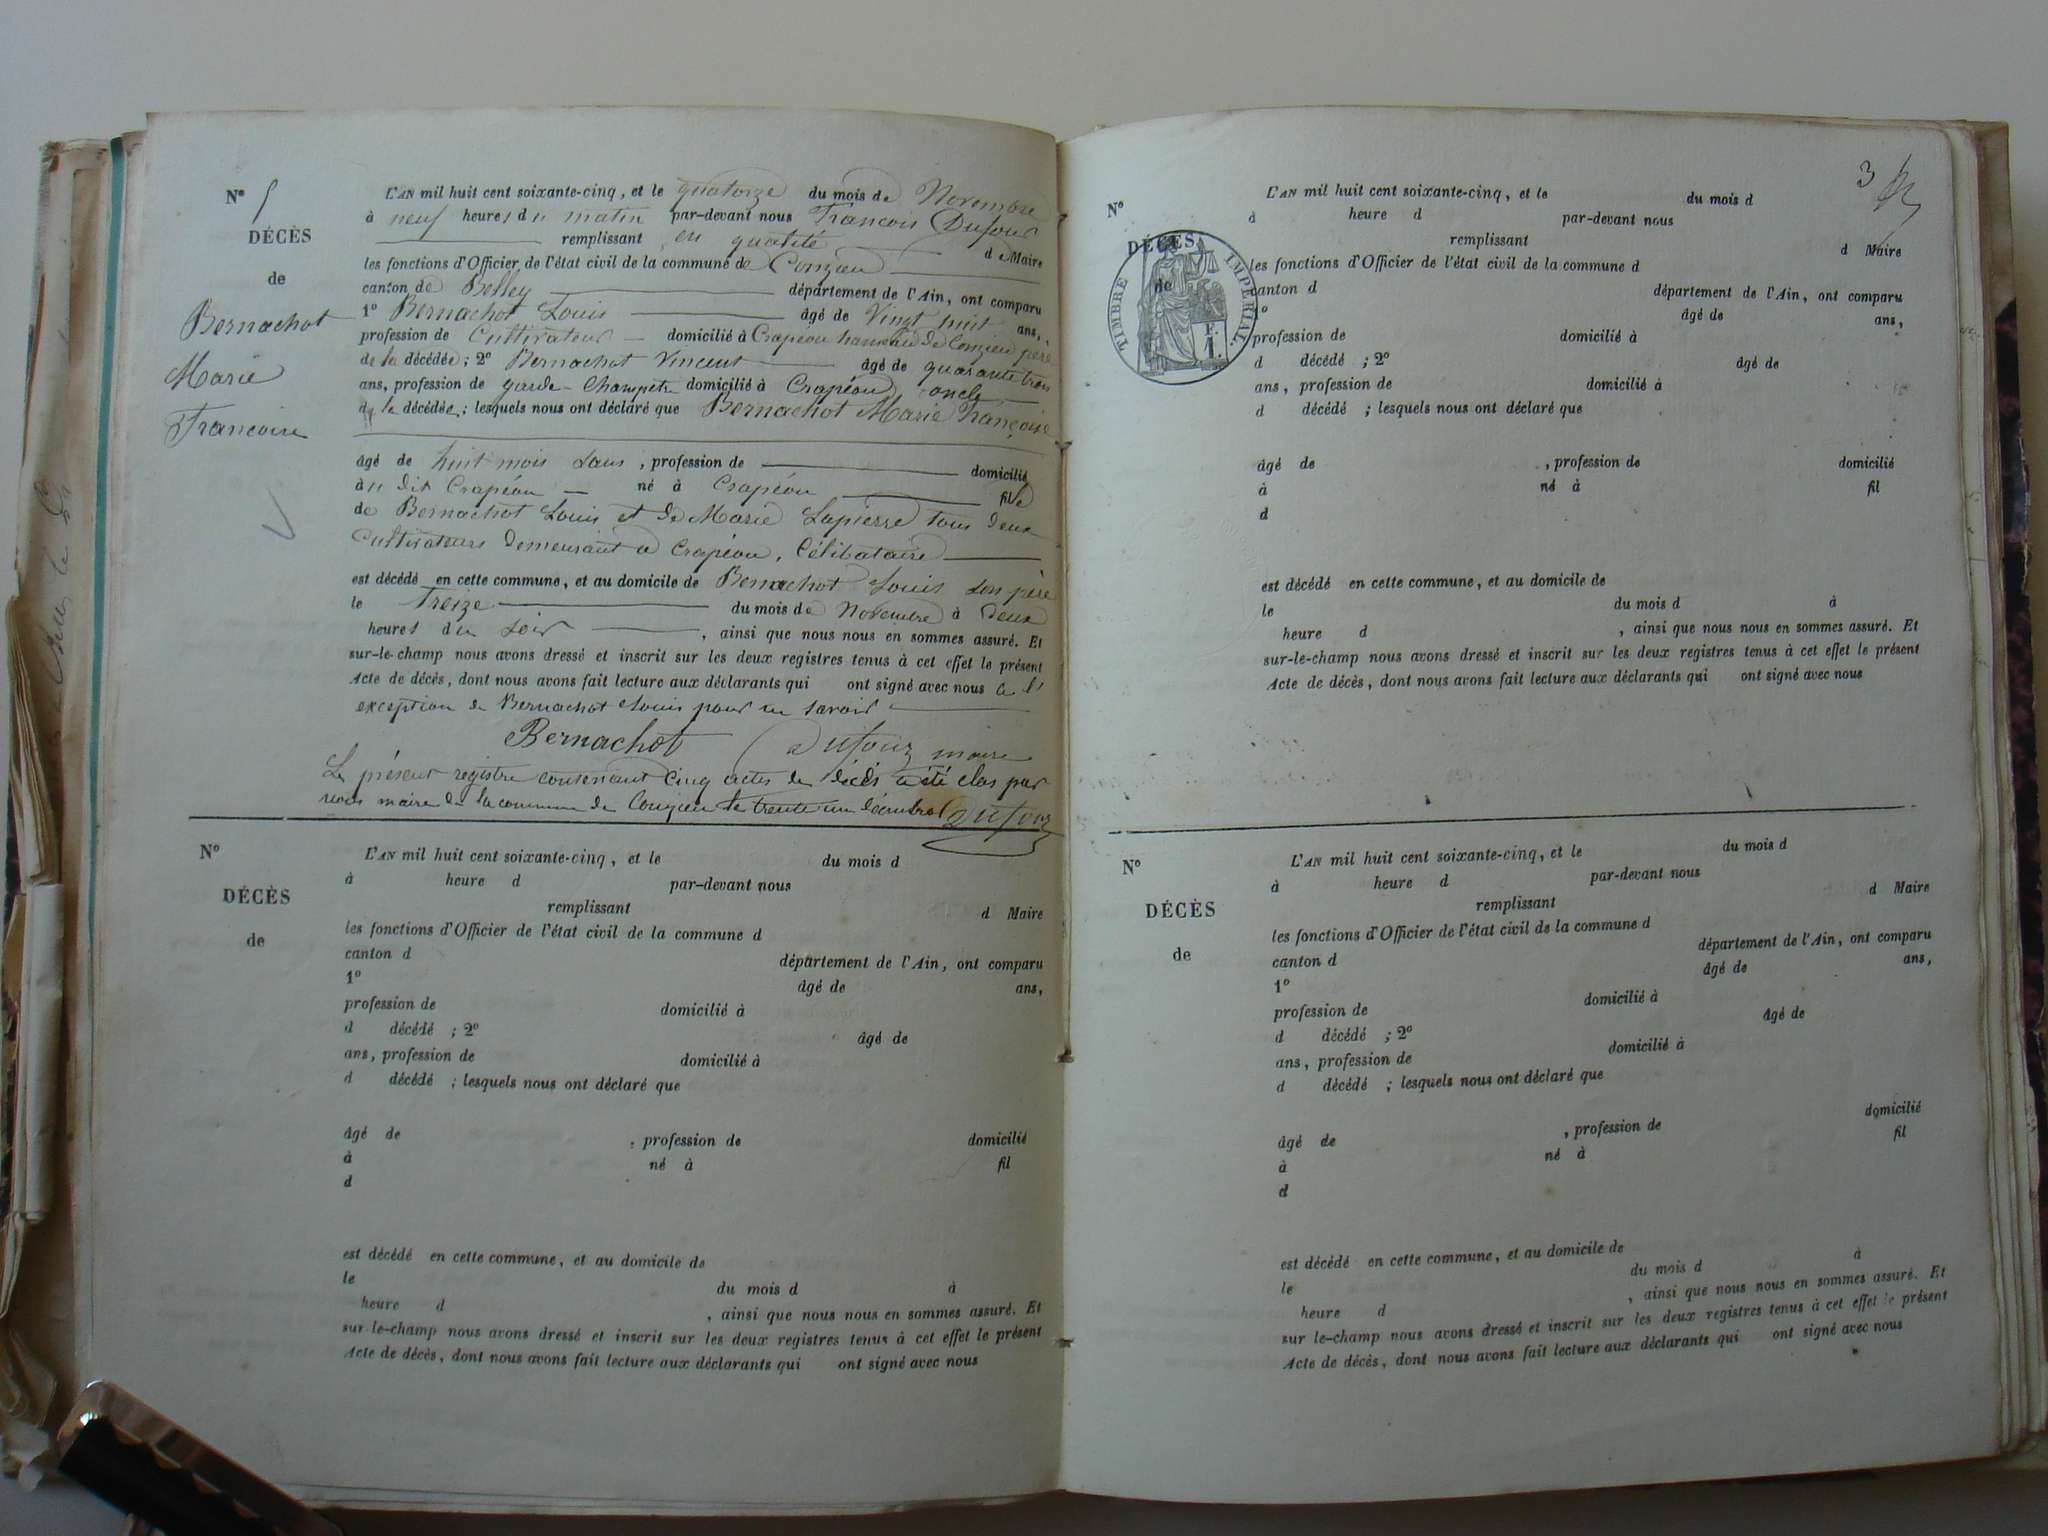 N° 5
DÉCÈS
de
Bernachot
Marie
Francoise
L'AN mil huit cent soixante-cinq, et le quatorze du mois de Novembre
à neuf heures du matin par-devant nous Francois Dufour
remplissant en qualité de Maire
les fonctions d'Officier de l'état civil de la commune de Conzieu
canton de Belley département de l'Ain, ont comparu
1° Bernachot Louis âgé de Vingt huit ans,
profession de Cultivateur domicilié à Crapéou hameau de Conzieu père
de la décédée; 2° Bernachot Vincent âgé de quarante trois
ans, profession de garde-Champêtre domicilié à Crapéou oncle
de la décédée; lesquels nous ont déclaré que Bernachot Marie Françoise
âgé de huit mois sans, profession de domicilié
à u dit Crapéou né à Crapéou fille
de Bernachot Louis et de Marie Lapierre tous deux
Cultivateurs demeurant à Crapéou, Célibataire
est décédé en cette commune, et au domicile de Bernachot Louis son père
le Treize du mois de Novembre à deux
heures du soir, ainsi que nous nous en sommes assuré. Et
sur-le-champ nous avons dressé et inscrit sur les deux registres tenus à cet effet le présent
Acte de décès, dont nous avons fait lecture aux déclarants qui ont signé avec nous à l'
exception de Bernachot Louis pour ne savoir
Bernachot Dufour maire
Le présent registre contenant cinq actes de décès a été clos par
nous maire de la commune de Conzieu le trente un décembre Dufour
N°
DÉCÈS
de
L'AN mil huit cent soixante-cinq, et le du mois d
à heure d par-devant nous
remplissant d Maire
les fonctions d'Officier de l'état civil de la commune d
canton d département de l'Ain, ont comparu
1° âgé de ans,
profession de domicilié à
d décédé ; 2° âgé de
ans, profession de domicilié à
d décédé ; lesquels nous ont déclaré que
âgé de , profession de domicilié
à né à fil
d
est décédé en cette commune, et au domicile de
le du mois d à
heure d , ainsi que nous nous en sommes assuré. Et
sur-le-champ nous avons dressé et inscrit sur les deux registres tenus à cet effet le présent
Acte de décès, dont nous avons fait lecture aux déclarants qui ont signé avec nous
3
N°
DÉCÈS
de
TIMBRE IMPÉRIAL.
F.
1.
L'AN mil huit cent soixante-cinq, et le du mois d
à heure d par-devant nous
remplissant d Maire
les fonctions d'Officier de l'état civil de la commune d
canton d département de l'Ain, ont comparu
1° âgé de ans,
profession de domicilié à
d décédé ; 2° âgé de
ans, profession de domicilié à
d décédé ; lesquels nous ont déclaré que
âgé de , profession de domicilié
à né à fil
d
est décédé en cette commune, et au domicile de
le du mois d à
heure d , ainsi que nous nous en sommes assuré. Et
sur-le-champ nous avons dressé et inscrit sur les deux registres tenus à cet effet le présent
Acte de décès, dont nous avons fait lecture aux déclarants qui ont signé avec nous
N°
DÉCÈS
de
L'AN mil huit cent soixante-cinq, et le du mois d
à heure d par-devant nous
remplissant d Maire
les fonctions d'Officier de l'état civil de la commune d
canton d département de l'Ain, ont comparu
1° âgé de ans,
profession de domicilié à
d décédé ; 2° âgé de
ans, profession de domicilié à
d décédé ; lesquels nous ont déclaré que
âgé de , profession de domicilié
à né à fil
d
est décédé en cette commune, et au domicile de
le du mois d à
heure d , ainsi que nous nous en sommes assuré. Et
sur le-champ nous avons dressé et inscrit sur les deux registres tenus à cet effet le présent
Acte de décès, dont nous avons fait lecture aux déclarants qui ont signé avec nous